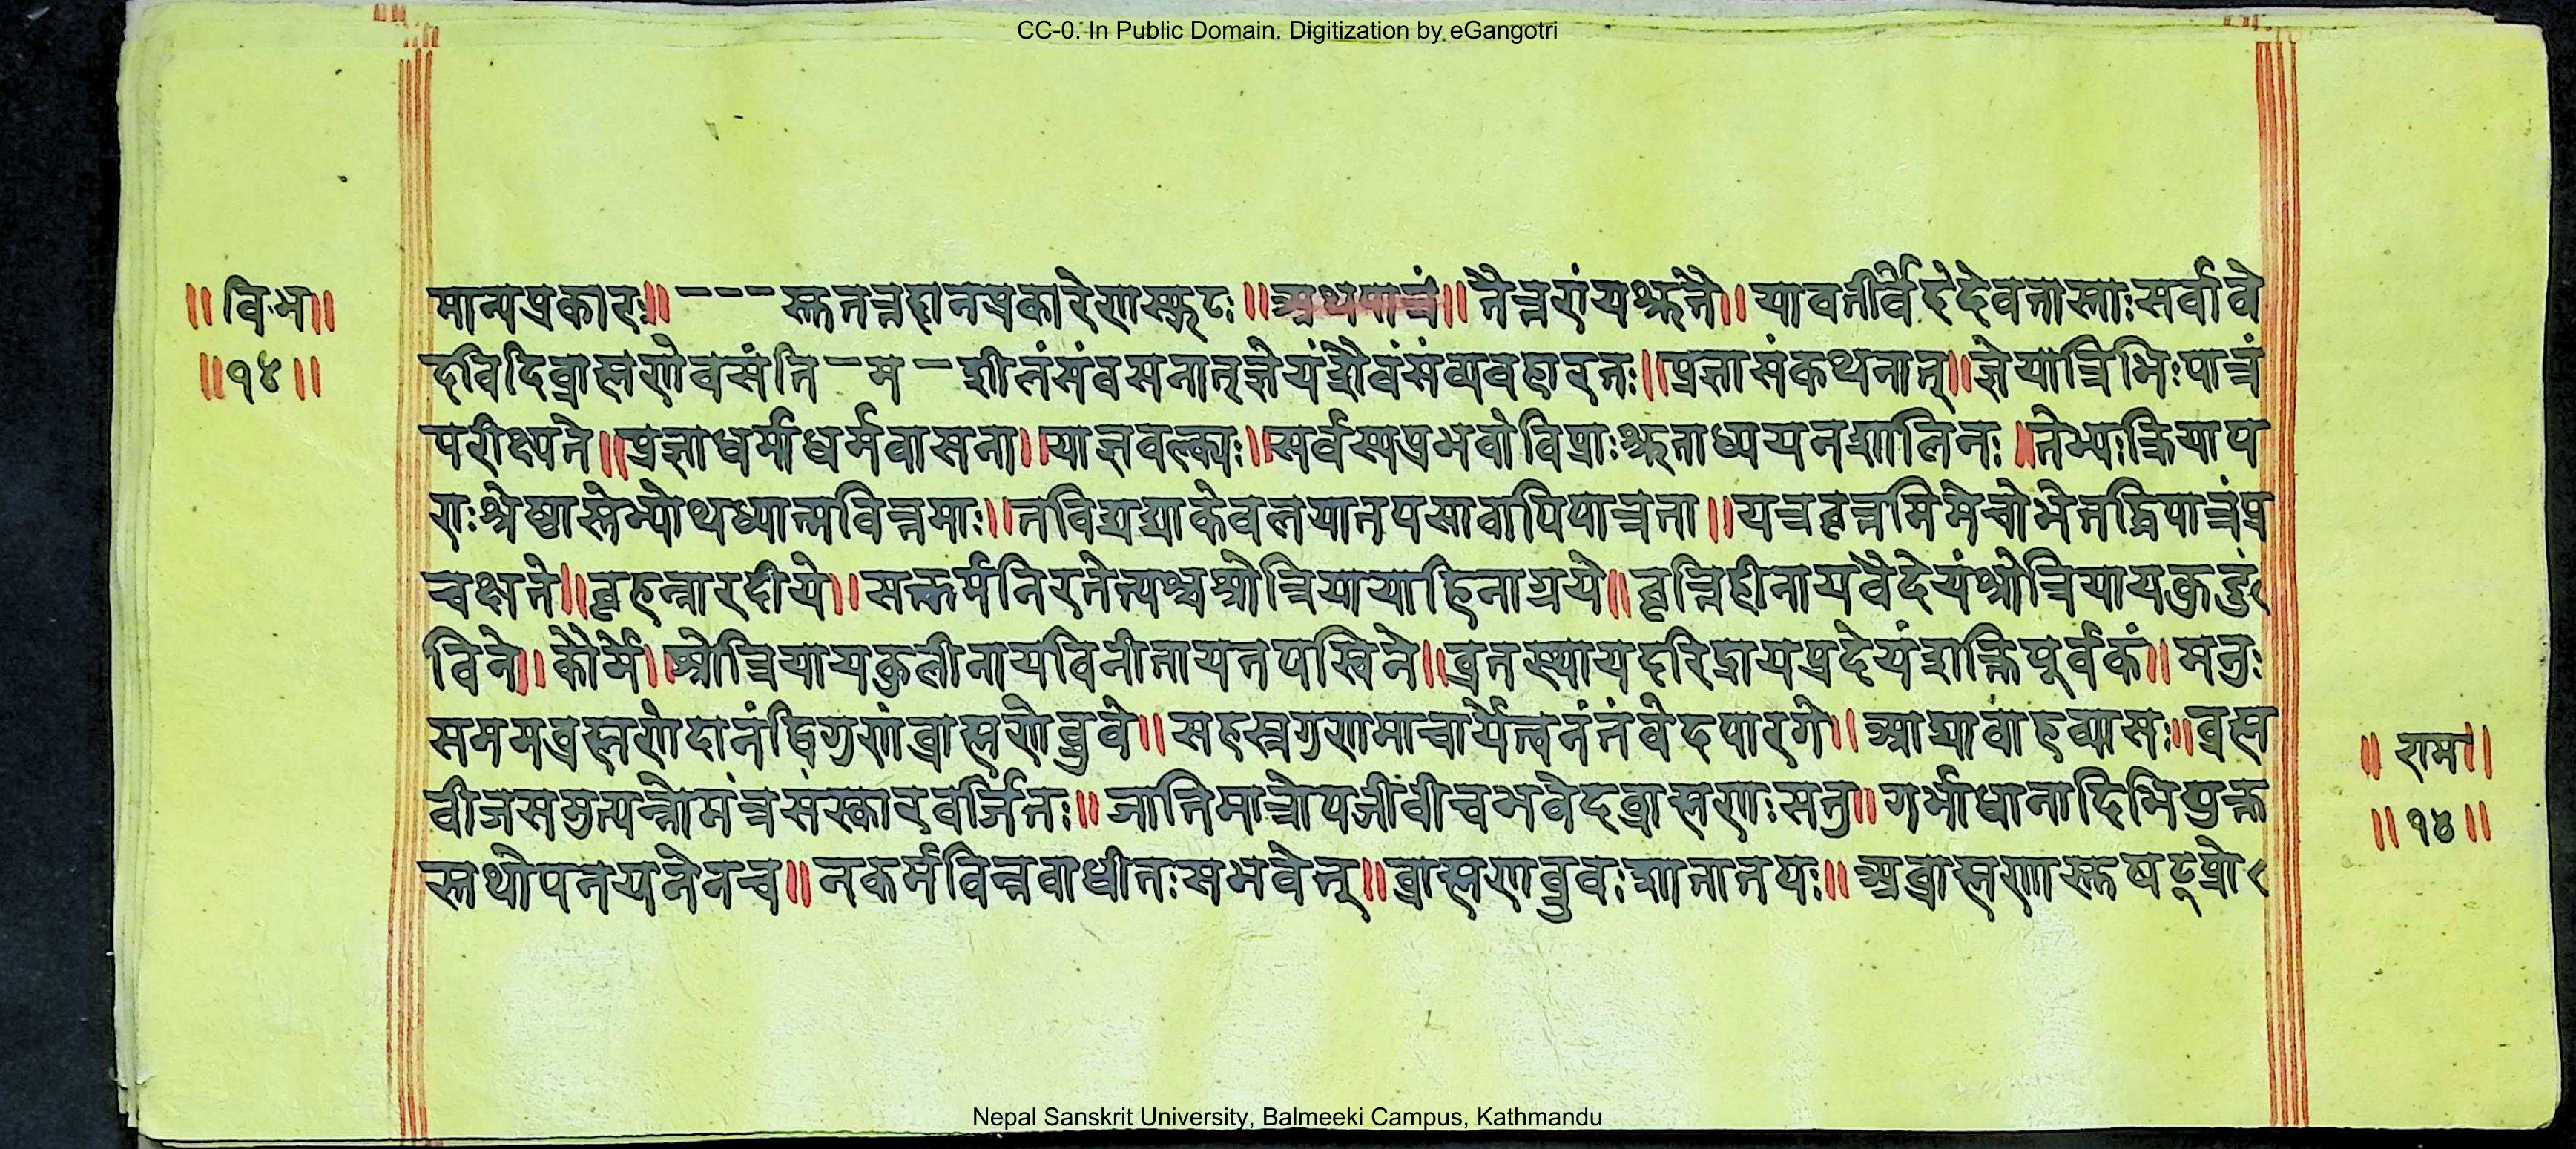 CC-0. In Public Domain. Digitization by eGangotri
॥ वि॰भ॥
॥१४॥
मान्यप्रकारः॥ – – – स्तत्तद्दानप्रकारेणस्फुटः ॥अथपात्रं॥ तैत्तरीयश्रुतौ॥ यावतीर्वैदेवतास्ताःसर्वावे
दविदिब्राह्मणेवसंति – म – शीलंसंवसनात्ज्ञेयंशौचंसंव्यवहारतः॥प्रज्ञासंकथनात्॥ज्ञेयात्रिभिःपात्रं
परीक्ष्यते॥प्रज्ञाधर्माधर्मवासना॥याज्ञवल्क्यः॥सर्वस्यप्रभवोविप्राःश्रुताध्ययनशालिनः॥तेभ्यःक्रियाप
राःश्रेष्ठास्तेभ्योथध्यात्मवित्तमाः॥नविद्यद्याकेवलयातपसावापिपात्रता॥यत्रवृत्तमिमेचोभेतद्धिपात्रंप्र
चक्षते॥बृहन्नारदीये॥सत्कर्मनिरतेत्यश्चश्रोत्रियायाहिताग्नये॥वृत्तिहीनायवैदेयंश्रोत्रियायकुटुं
विने॥कौर्मे॥श्रोत्रियायकुलीनायविनीतायतपस्विने॥व्रतस्थायदरिद्रायप्रदेयंशक्तिपूर्वकं॥मनुः
सममब्रह्मणेदानंद्विगुणंब्राह्मणेब्रुवे॥सहस्रगुणमाचार्येत्वनंतंवेदपारगे॥आद्यावाहव्यासः॥ब्रह्म
वीजसमुत्पन्नोमंत्रसंस्कारवर्जितः॥जातिमात्रोपजीवीचभवेदब्राह्मणःसतु॥गर्भाधानादिभियुक्त
स्तथोपनयनेनच॥नकर्मविन्नवाधीतःसभवेत्॥ब्राह्मणब्रुवःशातातयः॥अब्राह्मणास्तुषट्प्रो
॥ राम॥
॥१४॥
Nepal Sanskrit University, Balmeeki Campus, Kathmandu